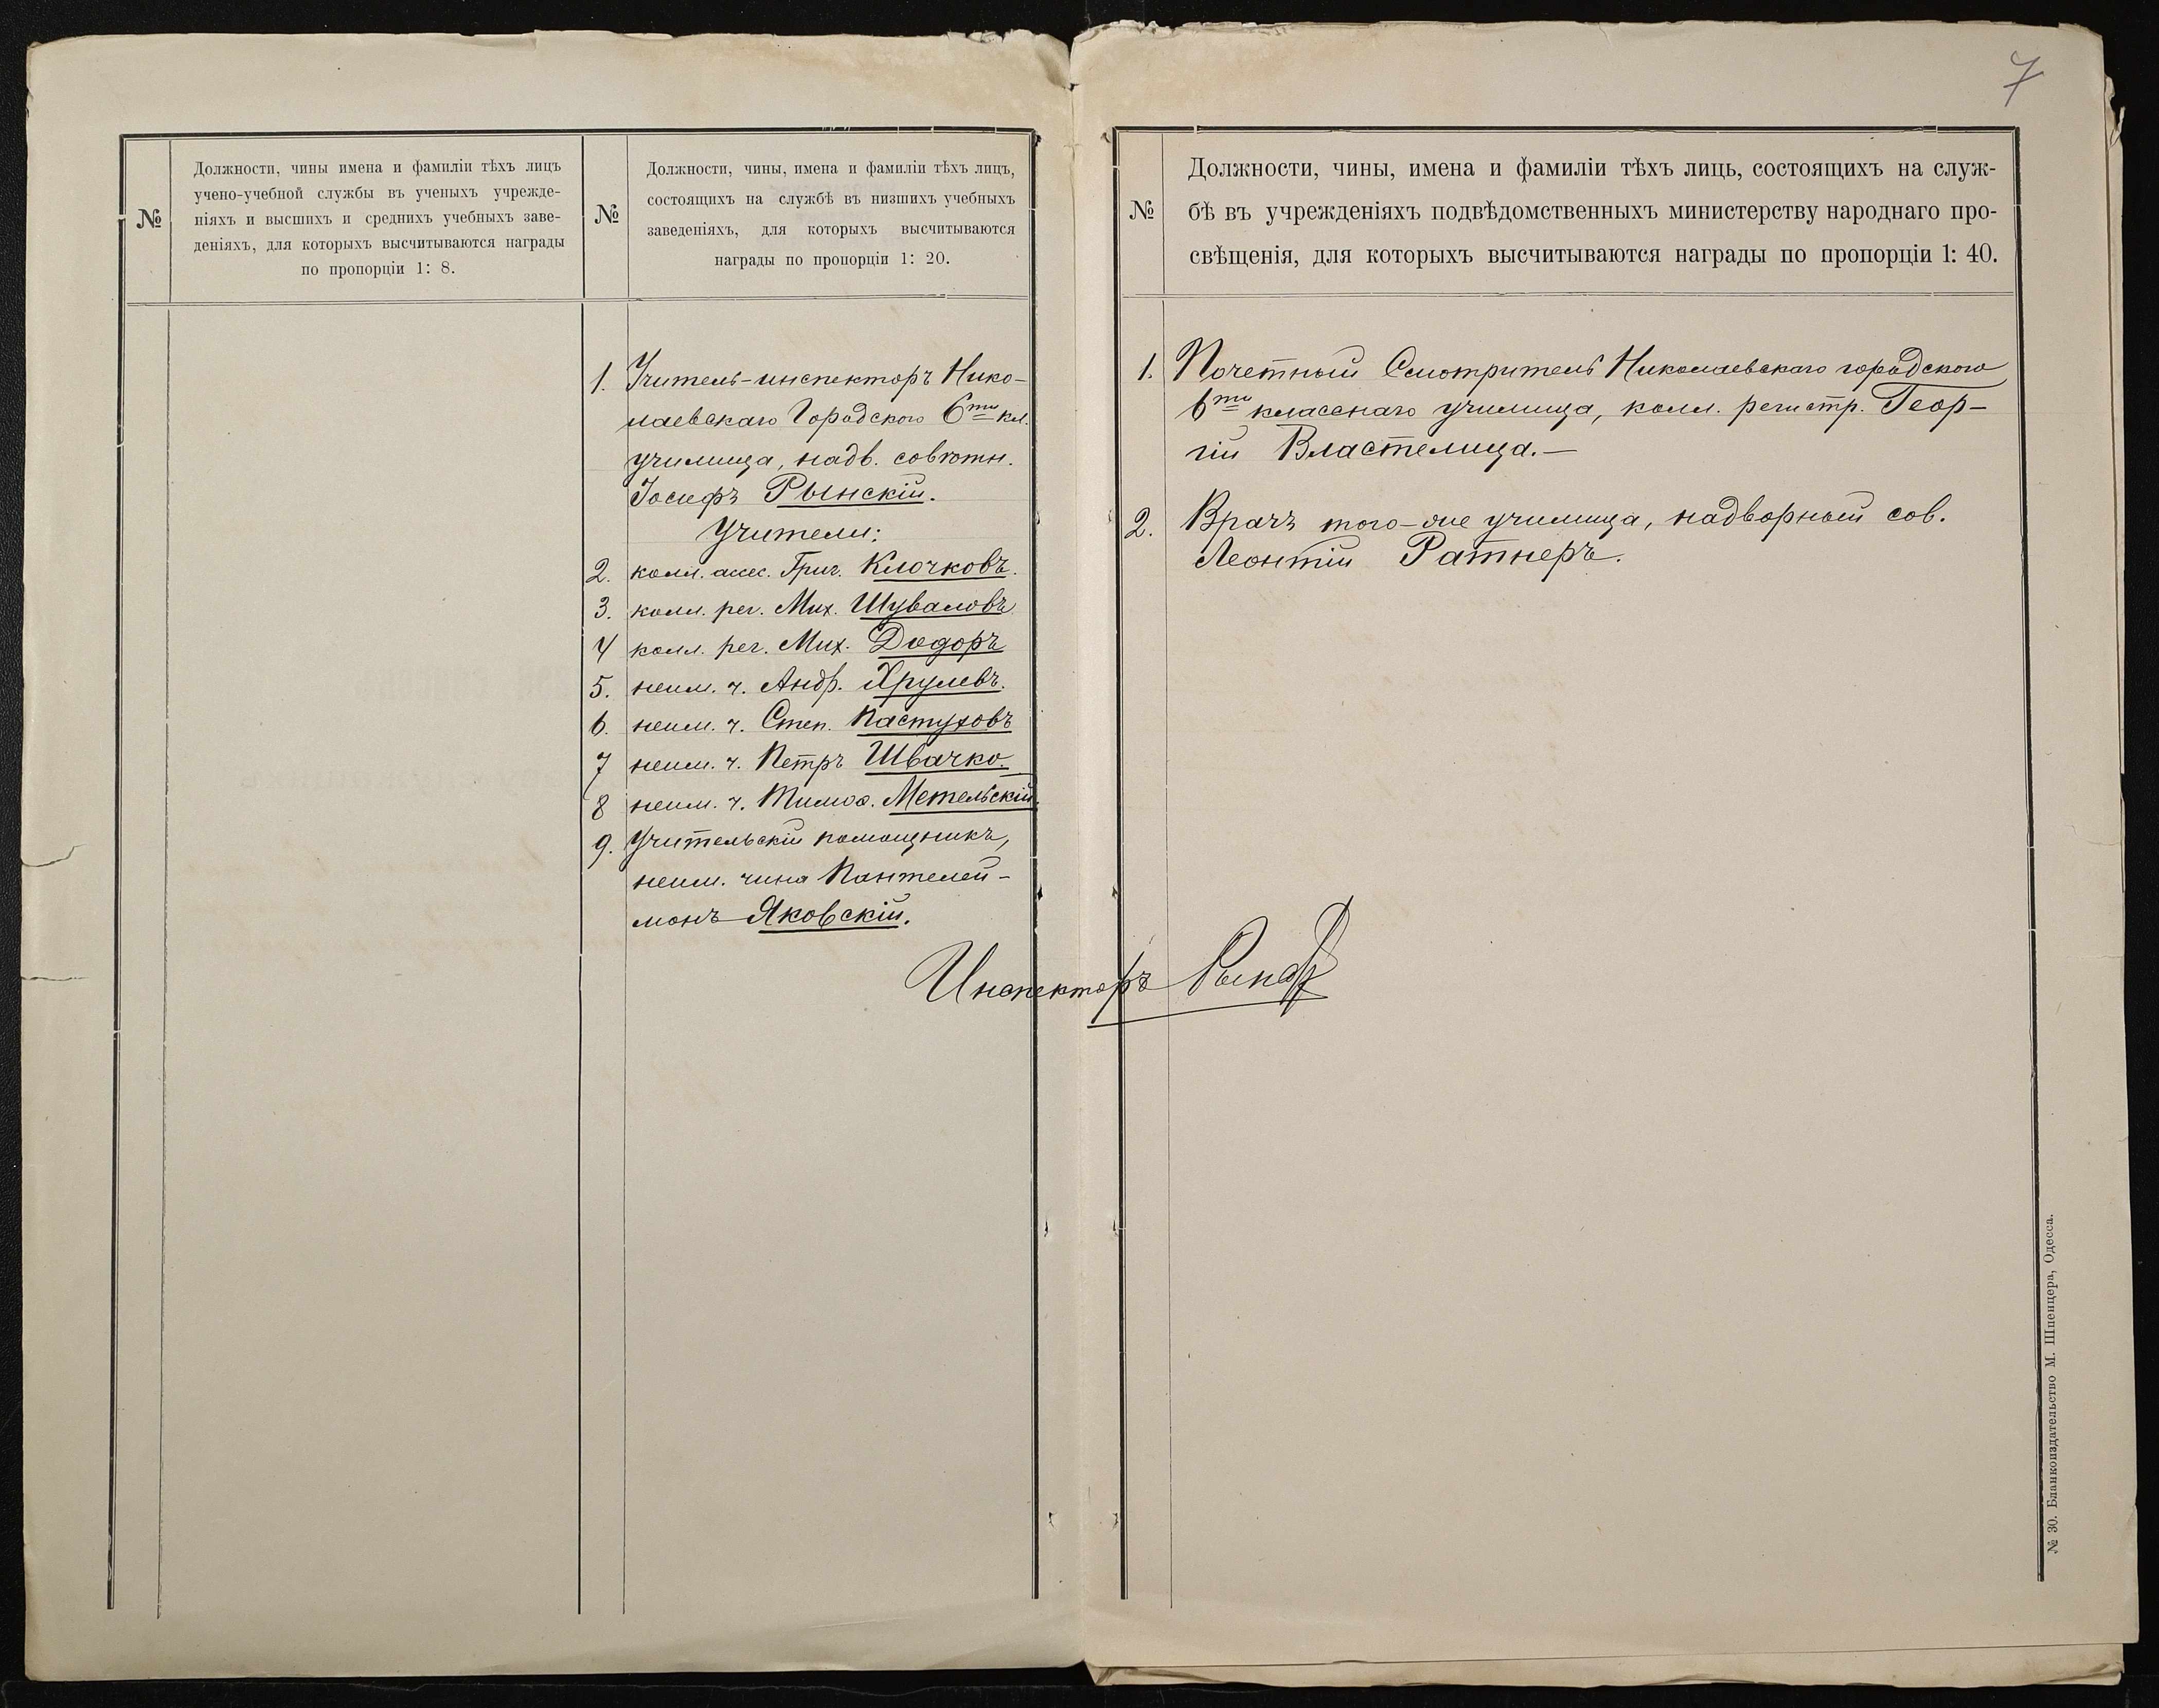 7
№
Должности, чины имена и фамиліи тѣхъ лицъ
учено-учебной службы въ ученыхъ учрежде-
ніяхъ и высшихъ и среднихъ учебныхъ заве-
деніяхъ, для которыхъ высчитываются награды
по пропорціи 1: 8.
№
Должности, чины, имена и фамиліи тѣхъ лицъ,
состоящихъ на службѣ въ низшихъ учебныхъ
заведеніяхъ, для которыхъ высчитываются
награды по пропорціи 1: 20.
1. Учитель-инспекторъ Нико-
лаевскаго Городского 6ти кл.
училища, надв. совѣтн.
Іосифъ Рынскій.
Учители:
2. колл. ассес. Григ. Клочковъ.
3. колл. рег. Мих. Шуваловъ
4 колл. рег. Мих. Додоръ
5. неим. ч. Андр. Хрулевъ.
6. неим. ч. Степ. Пастуховъ
7 неим. ч. Петръ Швачко.
8 неим. ч. Тимоѳ. Метельскій.
9. Учительскій помощникъ,
неим. чина Пантелей-
монъ Яковскій.
№
Должности, чины, имена и фамиліи тѣхъ лицъ, состоящихъ на служ-
бѣ въ учрежденіяхъ подвѣдомственныхъ министерству народнаго про-
свѣщенія, для которыхъ высчитываются награды по пропорціи 1: 40.
1. Почетный Смотритель Николаевскаго городского
6ти класснаго училища, колл. регистр. Геор-
гій Властелица.—
2. Врачъ того-же училища, надворный сов.
Леонтій Ратнеръ.
Инспекторъ
№ 30. Бланкоиздательство М. Шпенцера, Одесса.